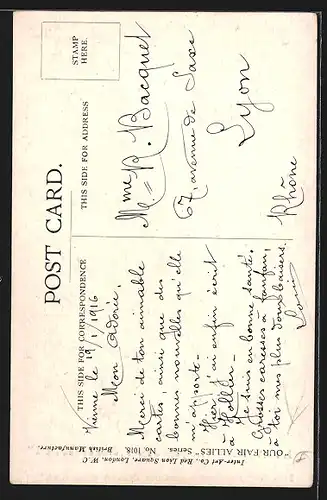 POST CARD.
THIS SIDE FOR CORRESPONDENCE
THIS SIDE FOR ADDRESS
STAMP
HERE.
Vienne le 19/1/1916
Mon adorée,
Merci de ton aimable
carte, ainsi que des
bonnes nouvelles qu'elle
m'apporte.
Hier, j'ai enfin écrit
à
Je suis en bonne santé.
Grosses caresses à fanfan,
à toi mes plus doux baisers.
Louis
Mme R. Bacquet
67, avenue de Saxe
Lyon
Rhône
"OUR FAIR ALLIES" Series. No. 1018. British Manufacture.
Inter-Art Co., Red Lion Square, London, W.C.